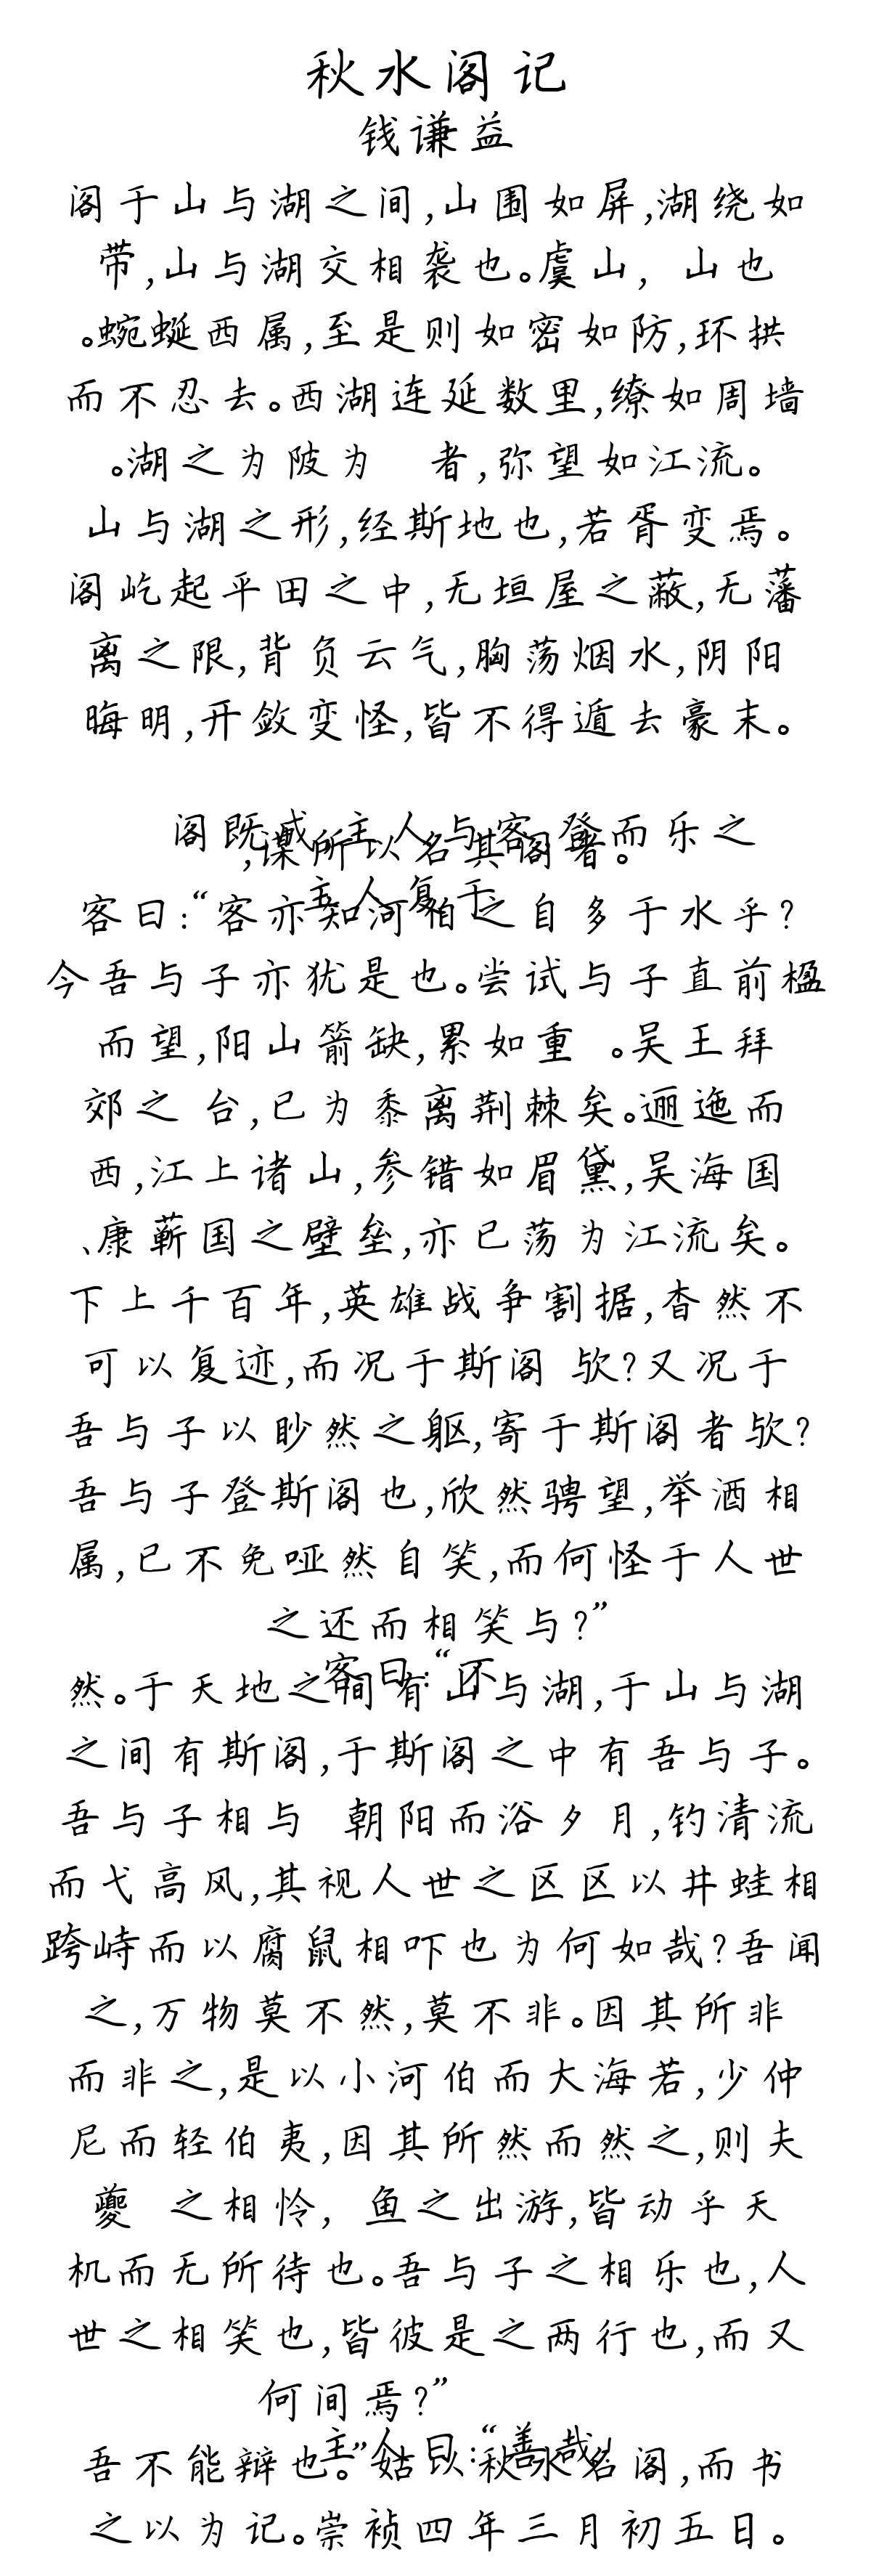 秋水阁记
钱谦益
阁于山与湖之间,山围如屏,湖绕如
带,山与湖交相袭也。虞山, 山也
。蜿蜒西属,至是则如密如防,环拱
而不忍去。西湖连延数里,缭如周墙
。湖之为陂为 者,弥望如江流。
山与湖之形,经斯地也,若胥变焉。
阁屹起平田之中,无垣屋之蔽,无藩
离之限,背负云气,胸荡烟水,阴阳
晦明,开敛变怪,皆不得遁去豪末。
阁既成,主人与客登而乐之
,谋所以名其阁者。
主人复于
客曰:“客亦知河伯之自多于水乎?
今吾与子亦犹是也。尝试与子直前楹
而望,阳山箭缺,累如重 。吴王拜
郊之 台,已为黍离荆棘矣。逦迤而
西,江上诸山,参错如眉黛,吴海国
、康蕲国之壁垒,亦已荡为江流矣。
下上千百年,英雄战争割据,杳然不
可以复迹,而况于斯阁 欤?又况于
吾与子以眇然之躯,寄于斯阁者欤?
吾与子登斯阁也,欣然骋望,举酒相
属,已不免哑然自笑,而何怪于人世
之还而相笑与?”
客曰:“不
然。于天地之间有山与湖,于山与湖
之间有斯阁,于斯阁之中有吾与子。
吾与子相与 朝阳而浴夕月,钓清流
而弋高风,其视人世之区区以井蛙相
跨峙而以腐鼠相吓也为何如哉?吾闻
之,万物莫不然,莫不非。因其所非
而非之,是以小河伯而大海若,少仲
尼而轻伯夷,因其所然而然之,则夫
夔 之相怜, 鱼之出游,皆动乎天
机而无所待也。吾与子之相乐也,人
世之相笑也,皆彼是之两行也,而又
何间焉?”
主人曰:“善哉!
吾不能辩也。”姑以秋水名阁,而书
之以为记。崇祯四年三月初五日。